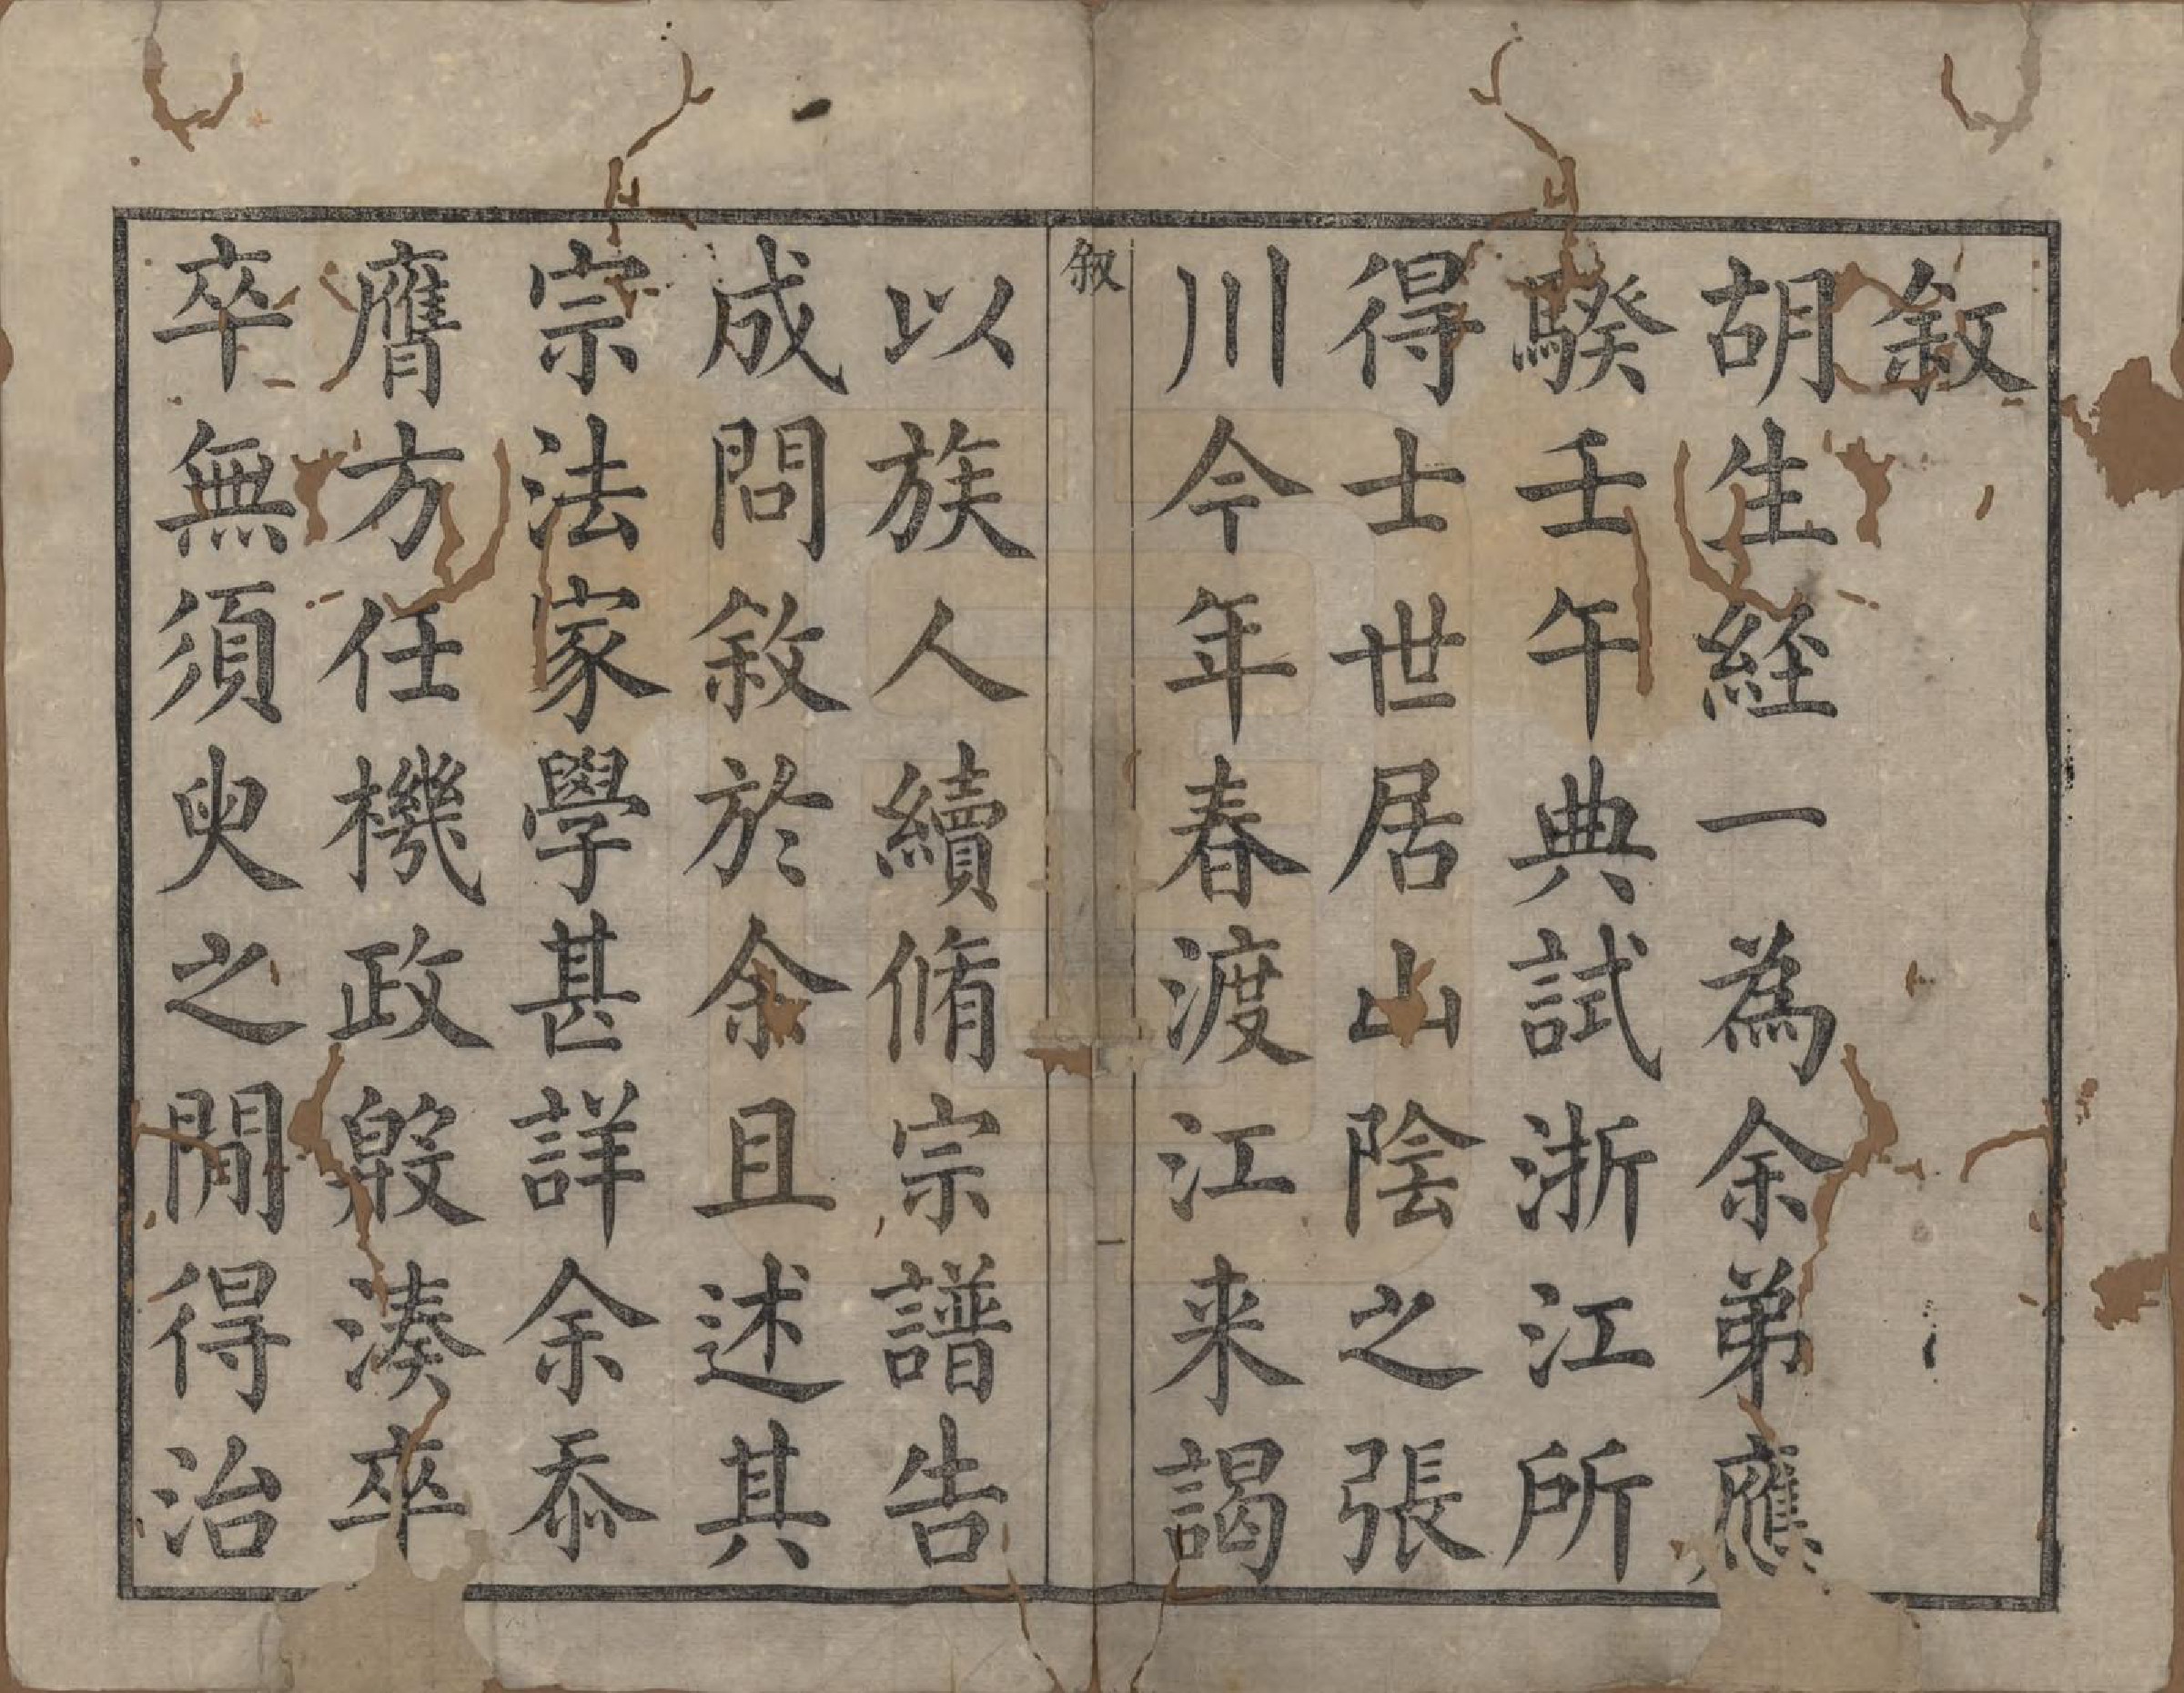 敘
胡生經一為余弟應
騤壬午典試浙江所
得士世居山陰之張
川今年春渡江来謁
敘
一
以族人續脩宗譜告
成問敘於余且述其
宗法家學甚詳余忝
膺方任機政殷湊卒
卒無須臾之閒得治